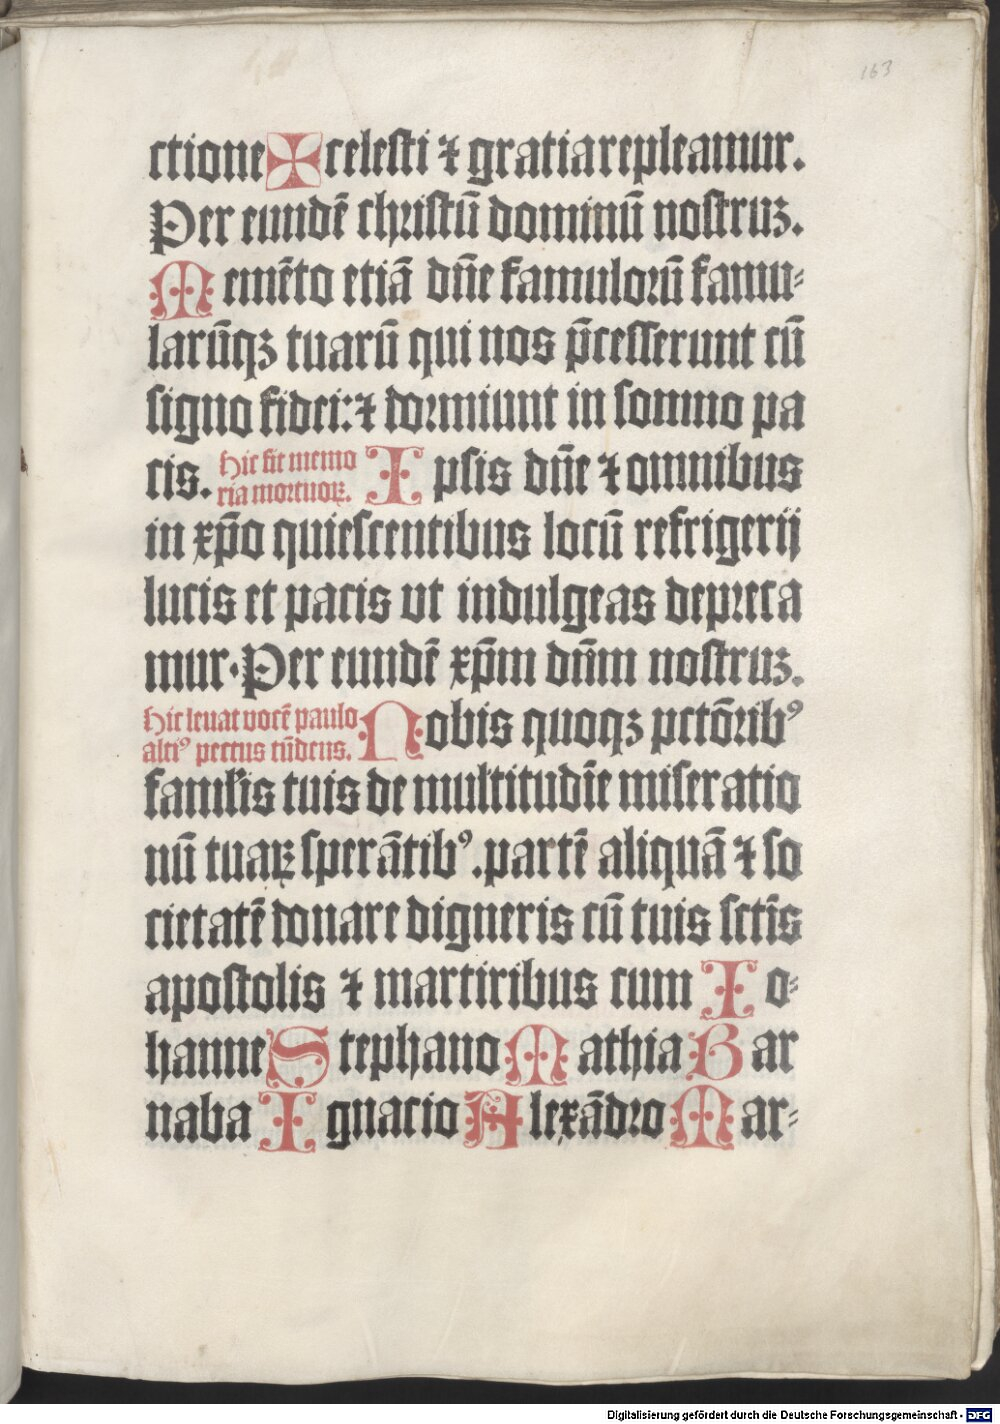 163
ctione ✠ celesti ⁊ gratia repleamur.
Per eundē christū dominū nostruꝫ.
Memēto etiā dn̄e famuloꝛū famu⸗
larūqꝫ tuarū qui nos p̄cesserunt cū
signo fidei: ⁊ doꝛmiunt in somno pa
cis. Hic fit memo Ipsis dn̄e ⁊ omnibus
ria moꝛtuoꝝ.
in xp̄o quiescentibus locū refrigerij
lucis et pacis vt indulgeas depꝛeca
mur. Per eundē xp̄m dn̄m nostruꝫ.
Hic leuat vocē paulo Nobis quoqꝫ pctōꝛibꝰ
altiꝰ pectus tūdens.
famĺis tuis de multitudīe miseratio
nū tuaꝝ sperātibꝰ. partē aliquā ⁊ so
cietatē donare digneris cū tuis sctīs
apostolis ⁊ martiribus cum Io⸗
hanne Stephano Mathia Bar
naba Ignacio Alexādꝛo Mar⸗
Digitalisierung gefördert durch die Deutsche Forschungsgemeinschaft - DFG